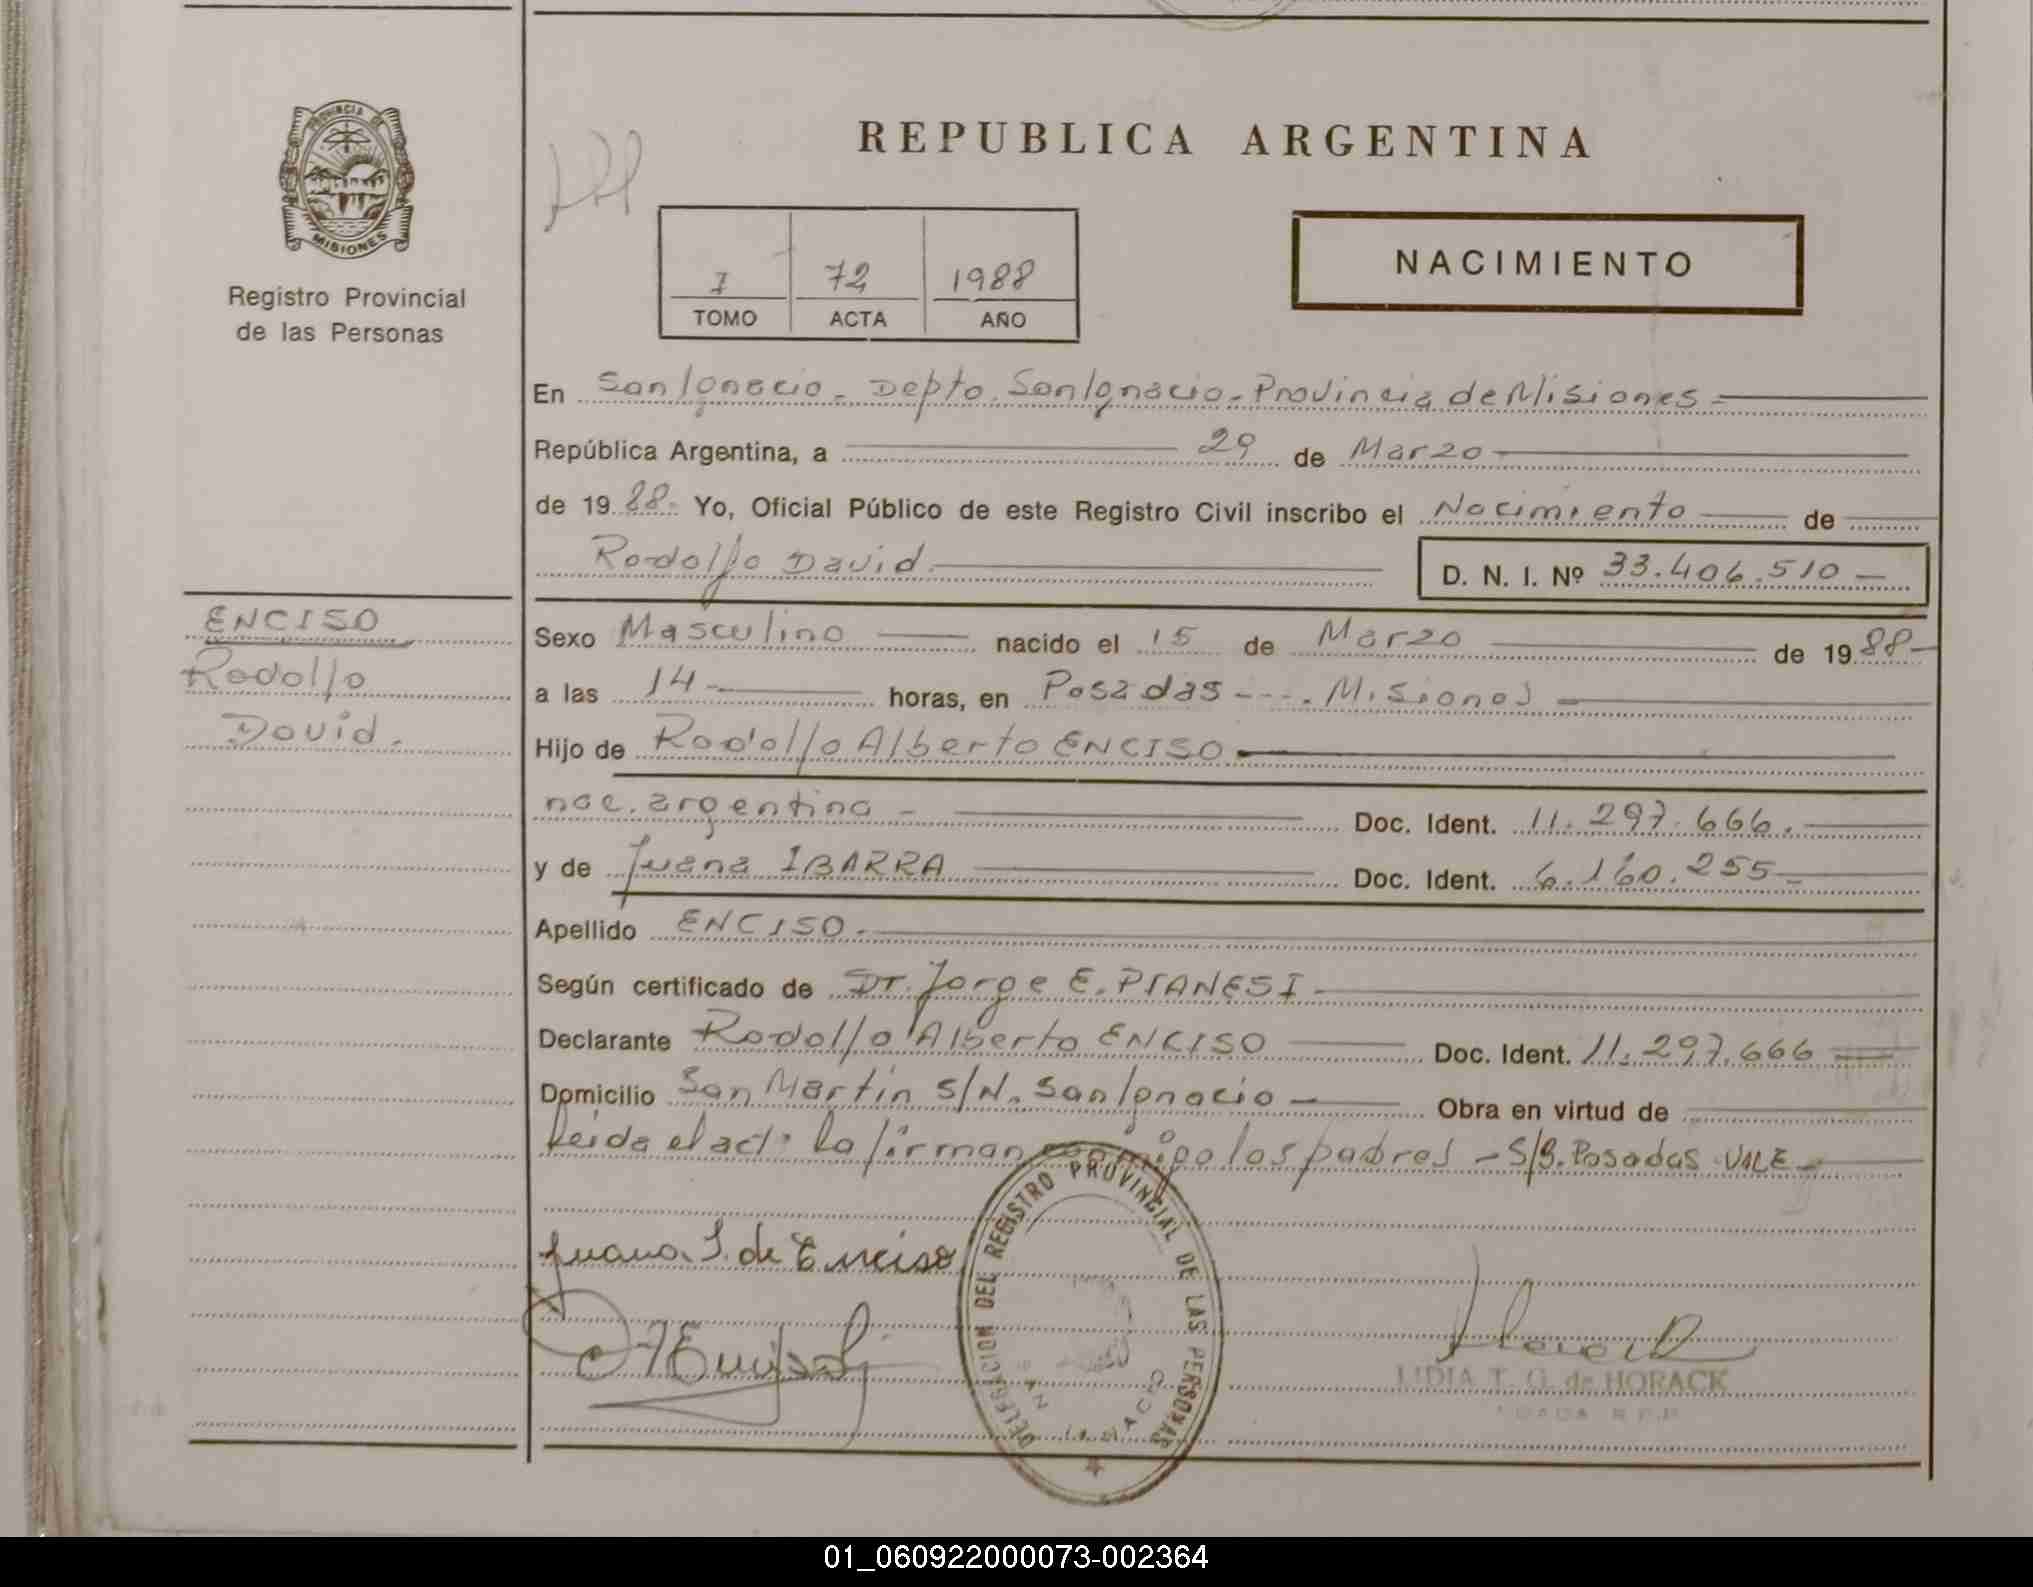 PROVINCIA DE
MISIONES
Registro Provincial
de las Personas
REPUBLICA ARGENTINA
NACIMIENTO
I 72 1988
TOMO ACTA AÑO
En San Ignacio - Depto. San Ignacio - Provincia de Misiones -
República Argentina, a 29 de Marzo
de 1988- Yo, Oficial Público de este Registro Civil inscribo el Nacimiento de
Rodolfo David. D. N. I. Nº 33.406.510 -
ENCISO
Rodolfo
David.
Sexo Masculino nacido el 15 de Marzo de 1988-
a las 14- horas, en Posadas ---. Misiones
Hijo de Rodolfo Alberto ENCISO
nac. argentina - Doc. Ident. 11.297.666.
y de Juana IBARRA Doc. Ident. 6.160.255-
Apellido ENCISO.
Según certificado de Dr. Jorge E. PIANESI
Declarante Rodolfo Alberto ENCISO Doc. Ident. 11.297.666
Domicilio San Martin S/N. San Ignacio - Obra en virtud de
Leida el acta la firman conmigo los padres - S/B. Posadas VALE -
Juana I. de Enciso
DELEGACION DEL REGISTRO PROVINCIAL DE LAS PERSONAS
SAN IGNACIO
LIDIA T. G. de HORACK
01_060922000073-002364